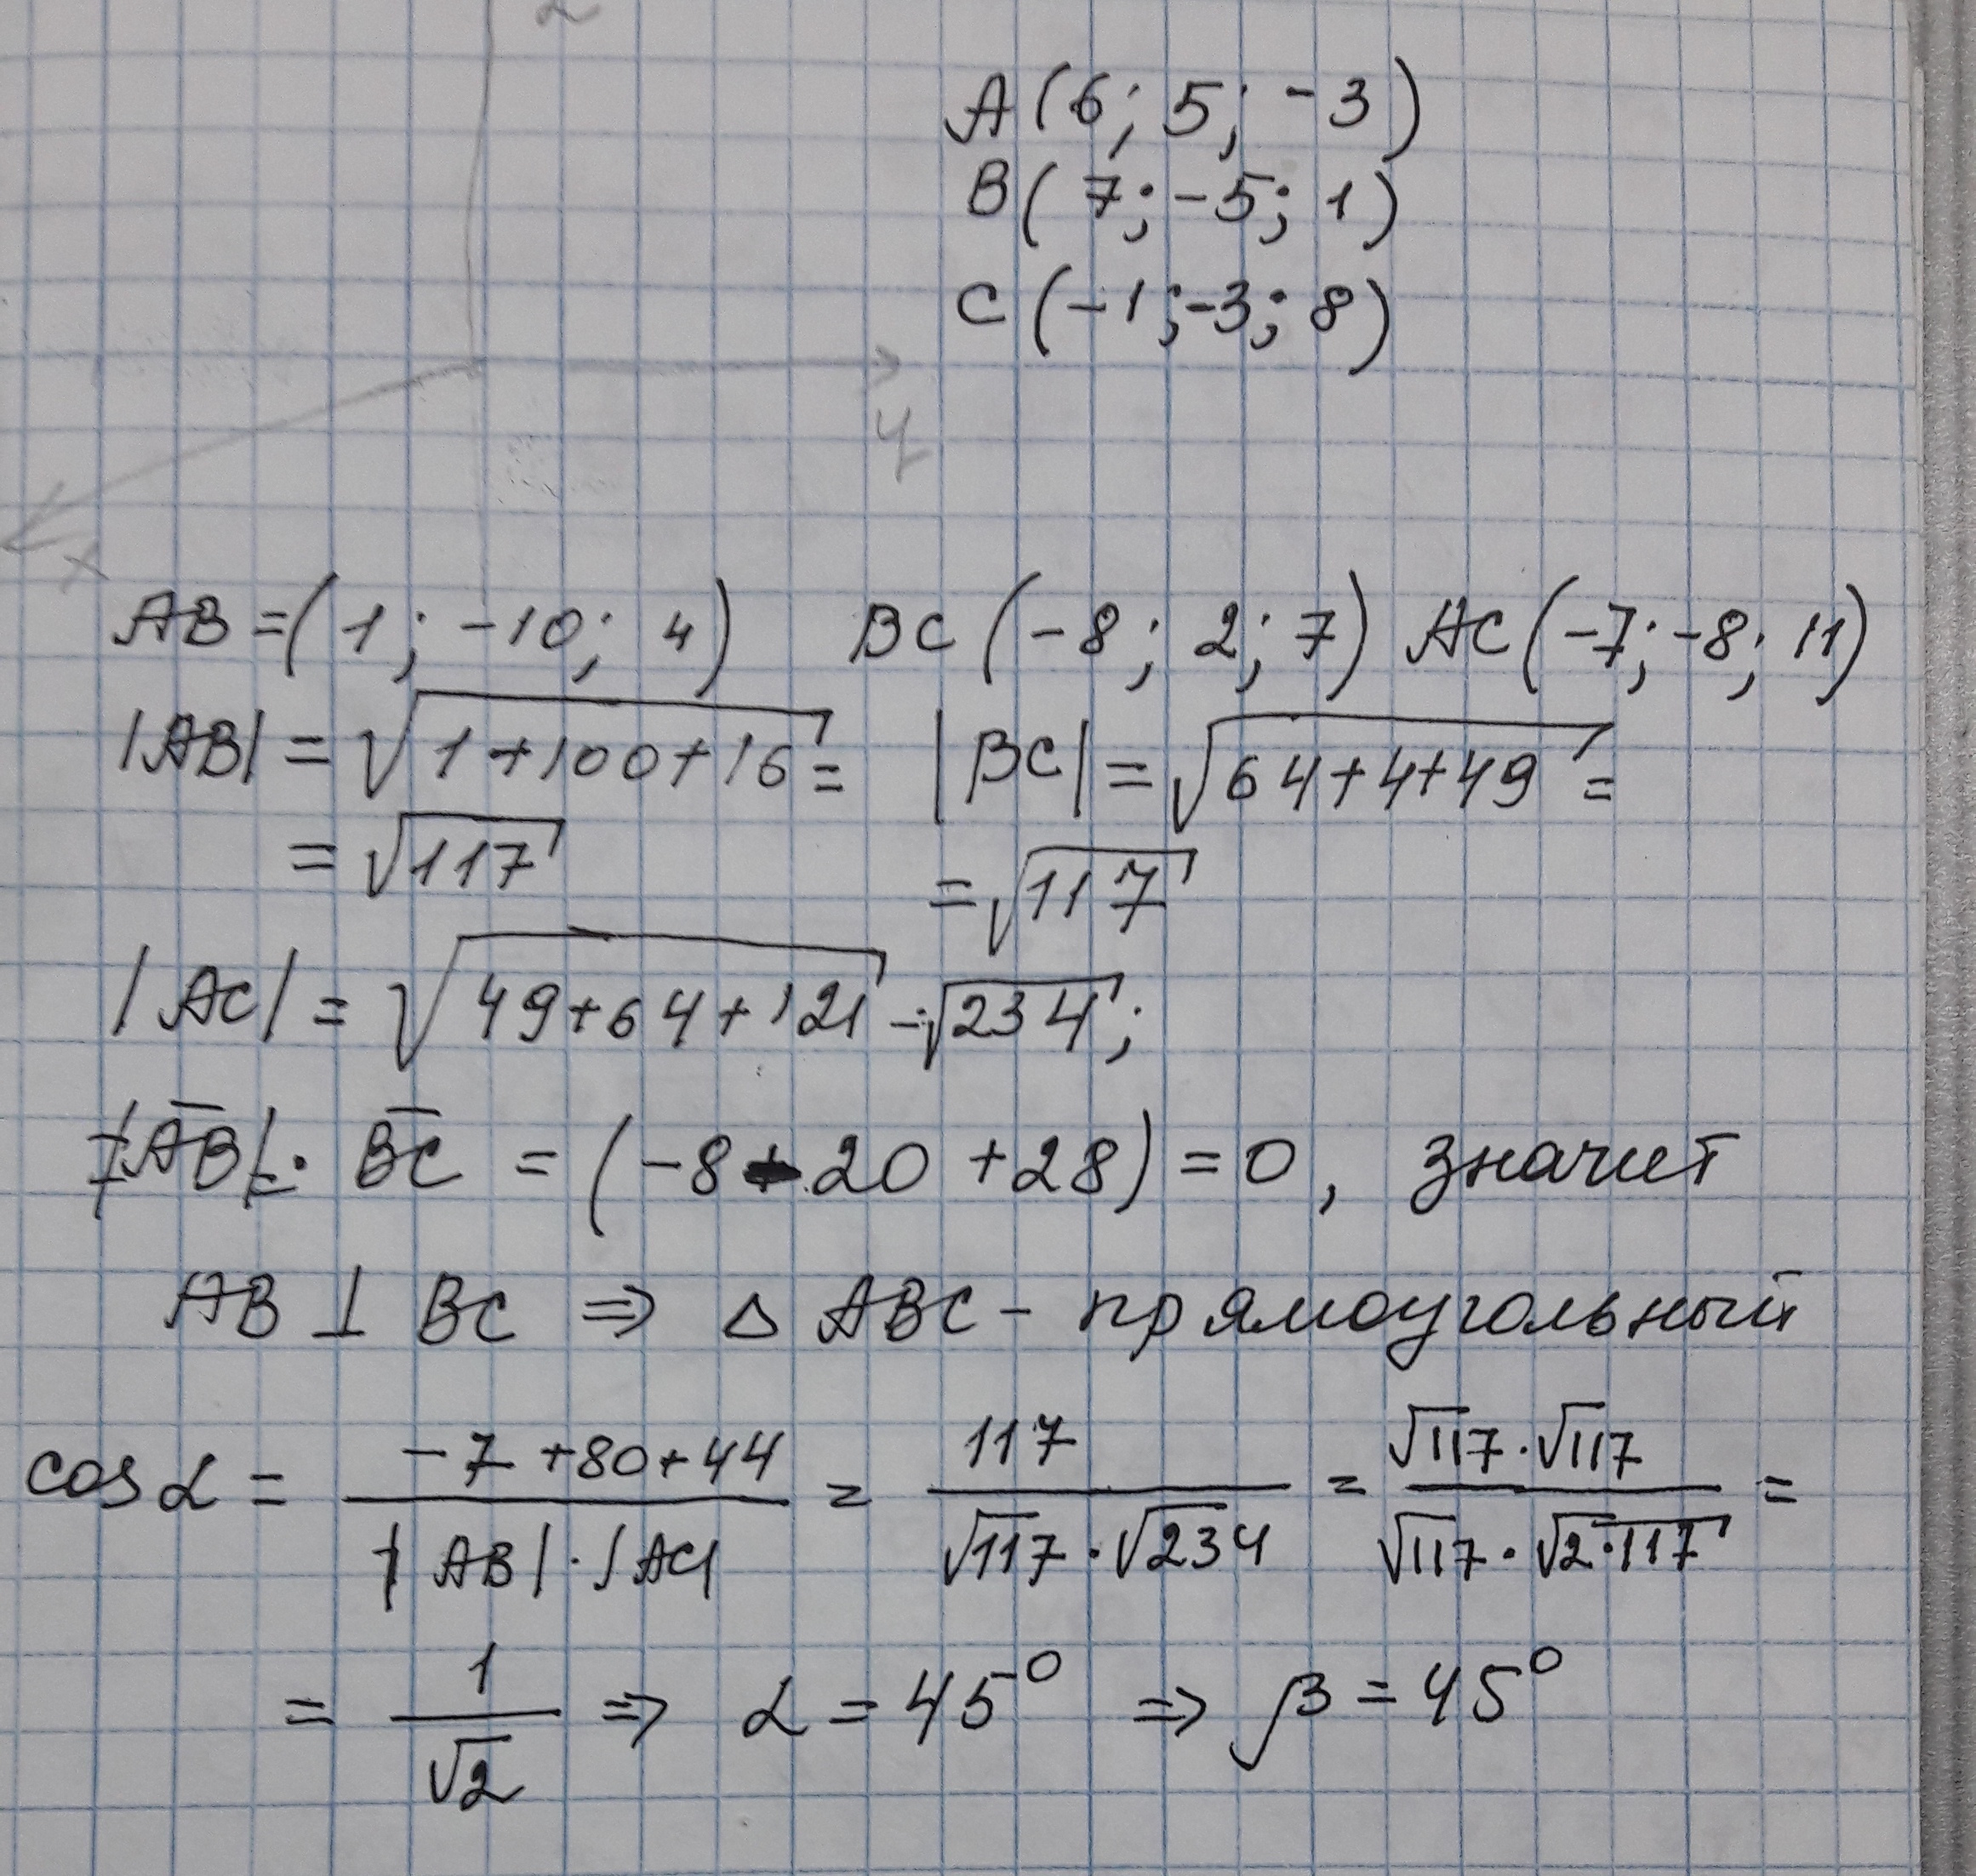 z
A(6; 5; -3)
B(7; -5; 1)
C(-1; -3; 8)
y
x
AB = (1; -10; 4) BC(-8; 2; 7) AC(-7; -8; 11)
|AB| = √(1+100+16) = |BC| = √(64+4+49) =
= √117 = √117
|AC| = √(49+64+121) = √234;
AB · BC = (-8 - 20 + 28) = 0, значит
AB ⊥ BC ⇒ △ ABC - прямоугольный
cos α = (-7 + 80 + 44)/(|AB| · |AC|) = 117/(√117 · √234) = (√117 · √117)/(√117 · √(2·117)) =
= 1/√2 ⇒ α = 45° ⇒ β = 45°